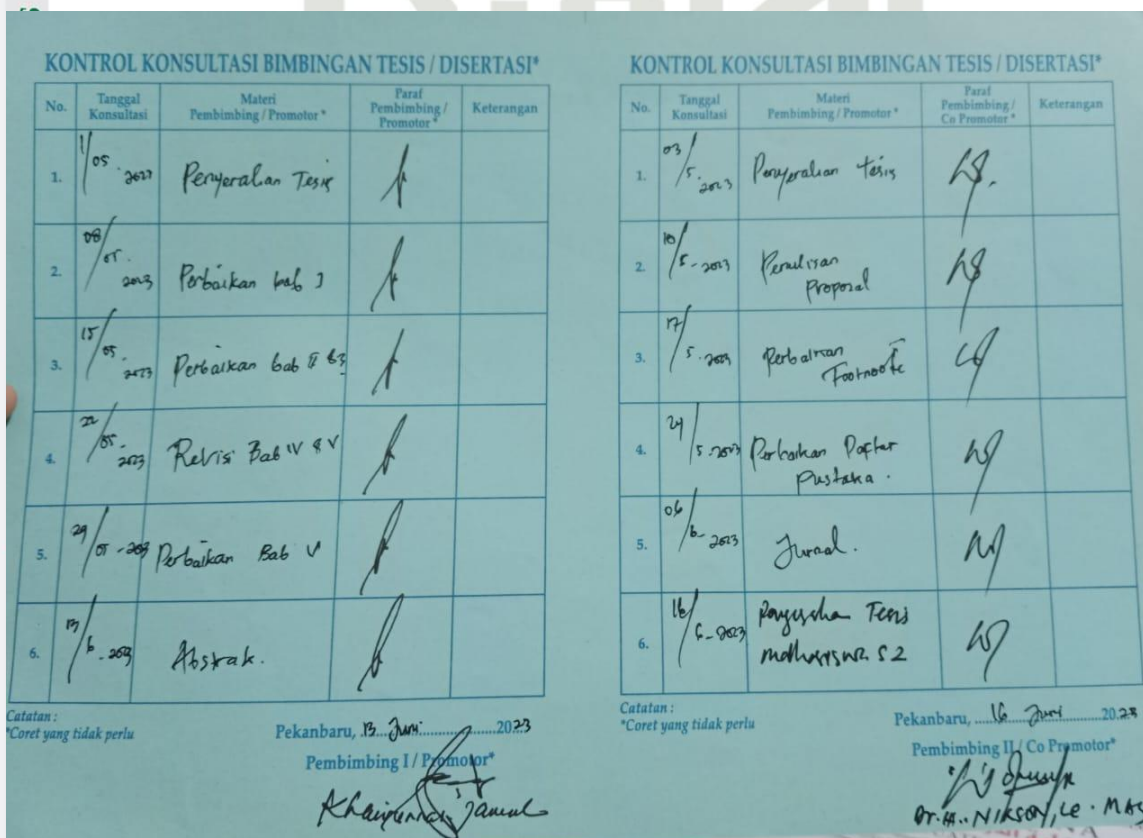 KONTROL KONSULTASI BIMBINGAN TESIS / DISERTASI*
No. Tanggal Konsultasi Materi Pembimbing / Promotor * Paraf Pembimbing / Promotor * Keterangan
1. 1/05.2023 Penyerahan Tesis
2. 08/05.2023 Perbaikan bab I
3. 15/05.2023 Perbaikan bab II & 3
4. 22/05.2023 Revisi Bab IV & V
5. 29/05-2023 Perbaikan Bab V
6. 13/6-2023 Abstrak.
Catatan :
*Coret yang tidak perlu
Pekanbaru, 13 Juni 2023
Pembimbing I / Promotor*
Jamal
KONTROL KONSULTASI BIMBINGAN TESIS / DISERTASI*
No. Tanggal Konsultasi Materi Pembimbing / Promotor * Paraf Pembimbing / Co Promotor * Keterangan
1. 03/5.2023 Penyerahan tesis
2. 10/5-2023 Penulisan
Proposal
3. 17/5.2023 Perbaikan
Footnoote
4. 24/5.2023 Perbaikan Daftar
Pustaka.
5. 06/6-2023 Jurnal.
6. 16/6-2023 Tesis
S2
Catatan :
*Coret yang tidak perlu
Pekanbaru, 16 Juni 2023
Pembimbing II / Co Promotor*
Dr. H. NIKSON, Lc. MAg